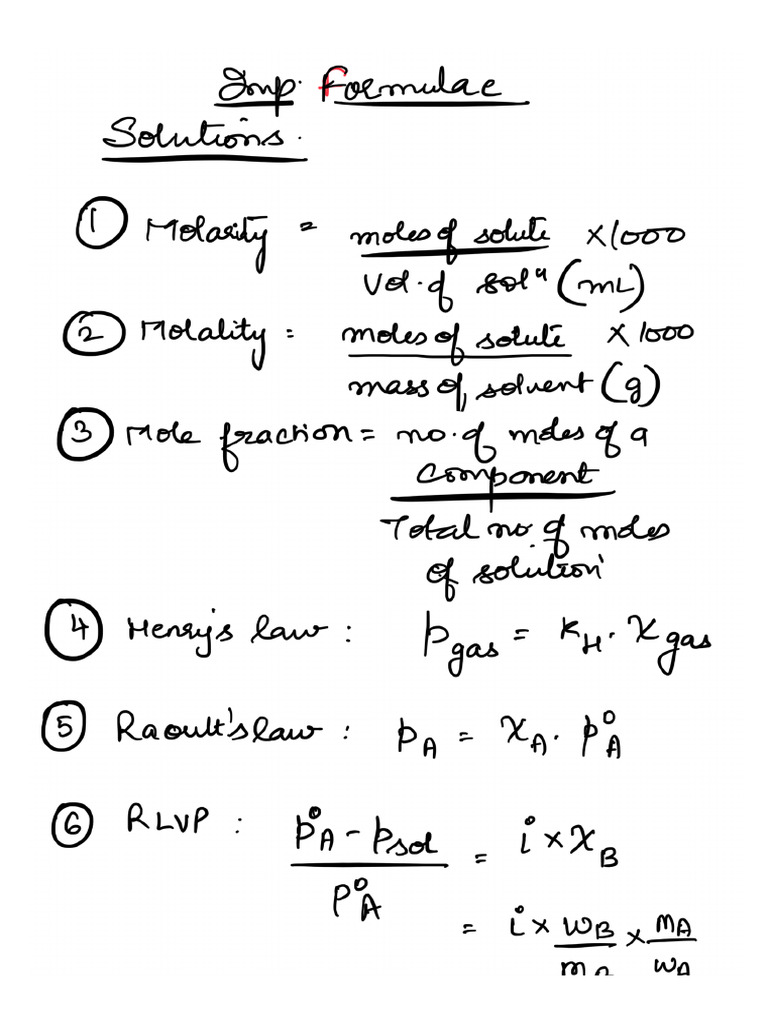 Imp. Formulae
Solutions.
① Molarity = moles of solute × 1000
Vol. of solⁿ (mL)
② Molality = moles of solute × 1000
mass of solvent (g)
③ Mole fraction = no. of moles of a
Component
Total no. of moles
of solution
④ Henry's law : p gas = K H . χ gas
⑤ Raoult's law : p A = χ A . p° A
⑥ RLVP : p° A - p sol = i × χ B
p° A
= i × w B × M A
w A